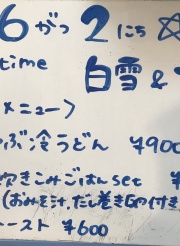 6がつ2にち☆
time
白雪&
メニュー〉
ぶ冷うどん ¥900
炊きこみごはんset ¥
(おみそ汁、だし巻きGの付き
ースト ¥600